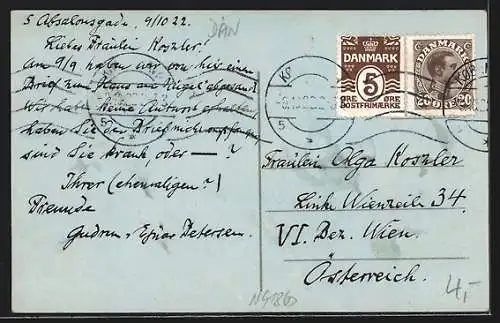 5 Absalonsgade, 9/10 22.
DÄN
Liebes Fräulein Koszler!
Am 9/9 haben wir von hier einen
Brief zum Haus am Hügel abgesandt
Wir haben keine Antwort erhalten
haben Sie den Brief nicht empfangen,
sind Sie krank oder — ?
Ihrer (ehemaligen?)
Freunde
Gudrun & Ejnar Petersen.
DANMARK
5
ØRE ØRE
POSTFRIMÆRKE
DANMARK
20 ØRE 20
KØ
5
Fräulein Olga Koszler
Linke Wienzeile 34
VI. Bez. Wien.
Österreich.
4,-